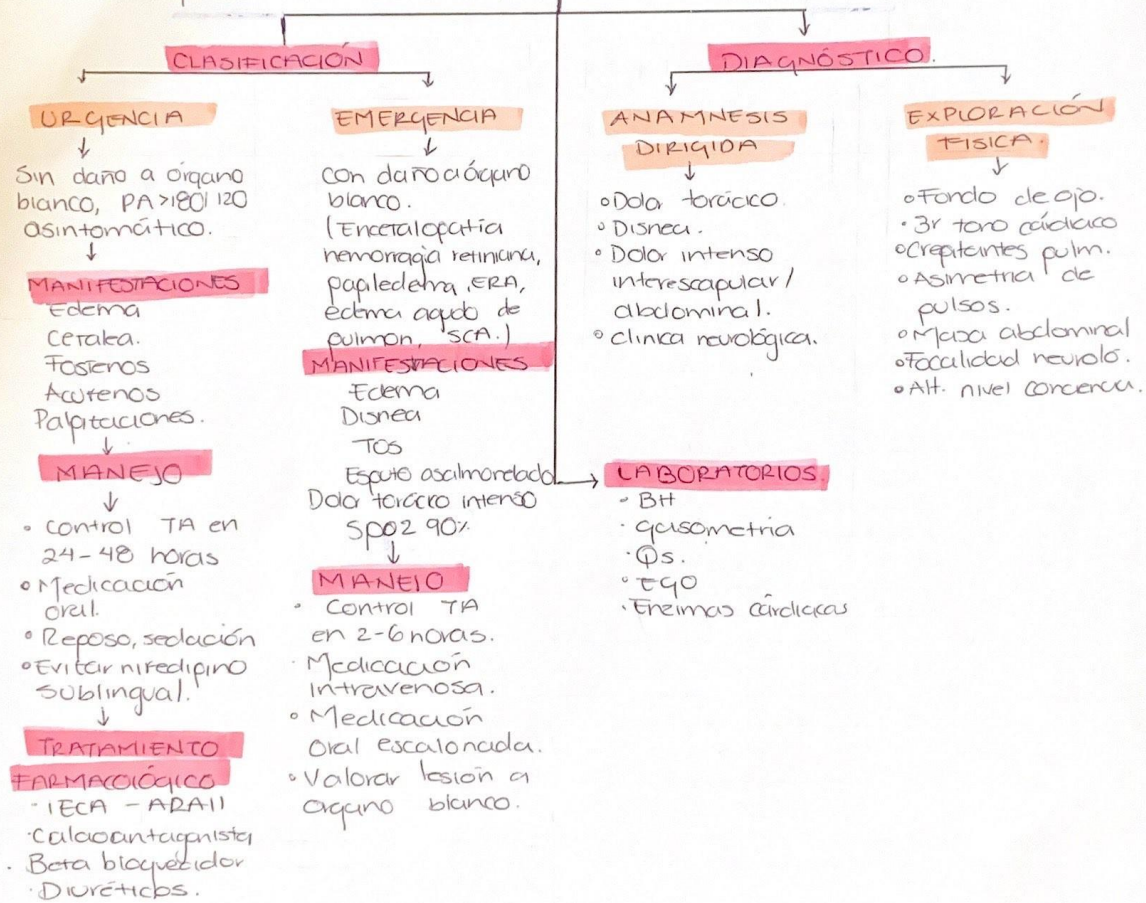 CLASIFICACIÓN
URGENCIA
Sin daño a órgano
blanco, PA >180/120
asintomático.
MANIFESTACIONES
Edema
Cefalea.
Fosfenos
Acufenos
Palpitaciones.
MANEJO
◦ Control TA en
24-48 horas
◦ Medicación
oral.
◦ Reposo, sedación
◦ Evitar nifedipino
sublingual.
TRATAMIENTO
FARMACOLÓGICO
· IECA - ARAII
· Calcioantagonista
· Beta bloqueador
· Diuréticos.
EMERGENCIA
con daño a órgano
blanco.
(Encefalopatía
hemorragia retiniana,
papiledema, ERA,
edema agudo de
pulmon, SCA.)
MANIFESTACIONES
Edema
Disnea
TOS
Esputo asalmonelado
Dolor torácico intenso
SpO2 90%
MANEJO
· Control TA
en 2-6 horas.
· Medicación
intravenosa.
◦ Medicación
oral escalonada.
◦ Valorar lesión a
organo blanco.
DIAGNÓSTICO.
ANAMNESIS
DIRIGIDA
◦ Dolor torácico.
◦ Disnea.
◦ Dolor intenso
interescapular/
abdominal.
◦ clinica neurológica.
EXPLORACIÓN
FISICA.
◦ Fondo de ojo.
· 3r tono cárdiaco
◦ Crepitantes pulm.
◦ Asimetria de
pulsos.
◦ Masa abdominal
◦ Focalidad neuroló.
◦ Alt. nivel conciencia.
LABORATORIOS.
· BH
· gasometria
· Qs.
◦ EGO
· Enzimas cárdiacas